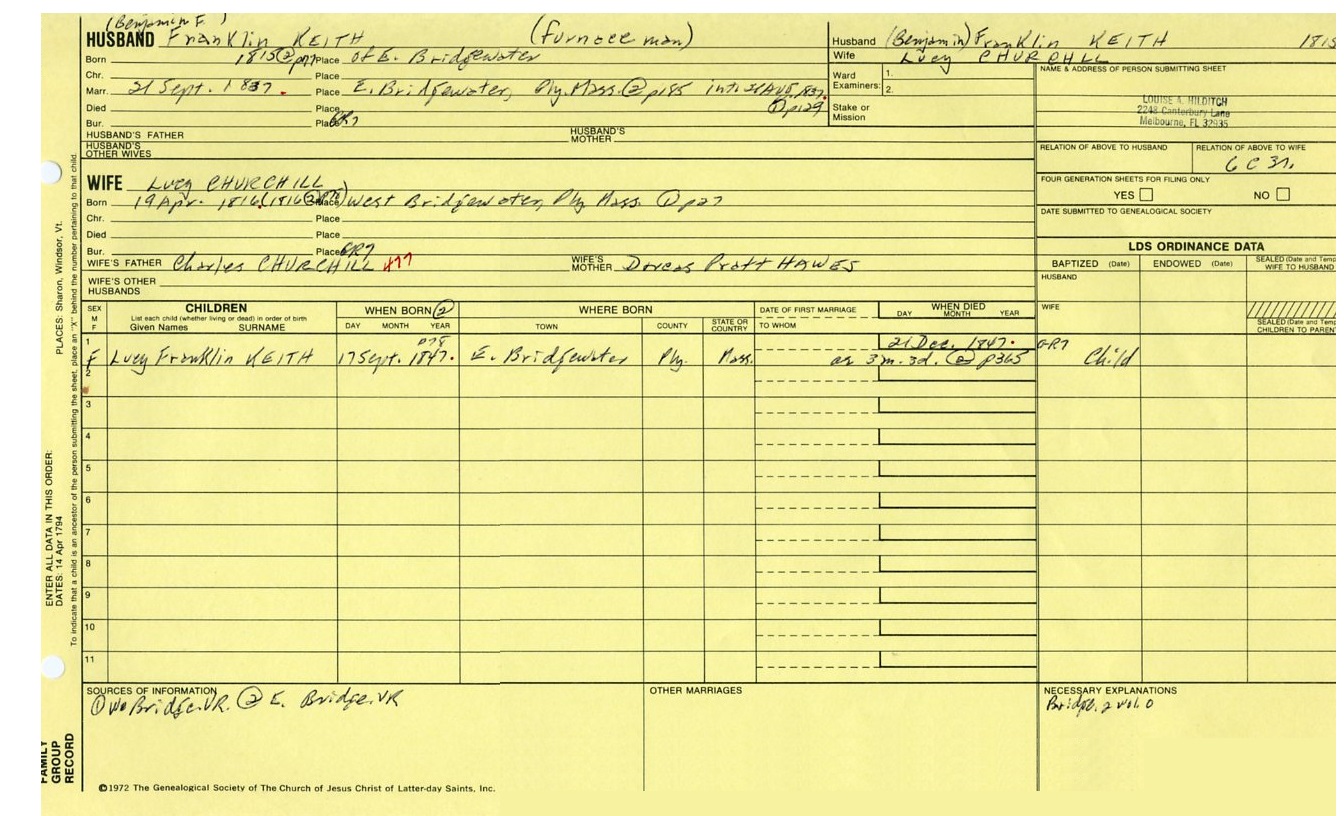 (Benjamin F.)
HUSBAND Franklin KEITH (furnace man)
Born 1815 ② p77 Place of E. Bridgewater
Chr. Place
Marr. 21 Sept. 1837. Place E. Bridgewater, Ply. Mass. ② p185 int. 26 AUG. 1837.
① p129
Died Place
Bur. Place GR7
HUSBAND'S FATHER HUSBAND'S MOTHER
HUSBAND'S OTHER WIVES
Husband (Benjamin) Franklin KEITH 1815
Wife Lucy CHURCHILL
Ward Examiners: 1.
2.
Stake or Mission
NAME & ADDRESS OF PERSON SUBMITTING SHEET
LOUISE A. HILDITCH
2248 Canterbury Lane
Melbourne, FL 32935
RELATION OF ABOVE TO HUSBAND RELATION OF ABOVE TO WIFE
6C 3r.
FOUR GENERATION SHEETS FOR FILING ONLY
YES NO
DATE SUBMITTED TO GENEALOGICAL SOCIETY
WIFE Lucy CHURCHILL
Born 19 Apr. 1816 (1816 ② p78) Place West Bridgewater, Ply Mass. ① p27
Chr. Place
Died Place
Bur. Place GR7
WIFE'S FATHER Charles CHURCHILL #77 WIFE'S MOTHER Dorcas Pratt HAWES
WIFE'S OTHER HUSBANDS
LDS ORDINANCE DATA
BAPTIZED (Date) ENDOWED (Date) SEALED (Date and Temp
WIFE TO HUSBAND
HUSBAND
WIFE
SEALED (Date and Temp
CHILDREN TO PARENT
SEX
M
F
CHILDREN
List each child (whether living or dead) in order of birth
Given Names SURNAME
WHEN BORN ②
DAY MONTH YEAR
WHERE BORN
TOWN COUNTY STATE OR COUNTRY
DATE OF FIRST MARRIAGE
TO WHOM
WHEN DIED
DAY MONTH YEAR
1 p78 21 Dec. 1847. GR7
F Lucy Franklin KEITH 17 Sept. 1847. E. Bridgewater Ply. Mass. ae 3m. 3d. ② p365 Child
2
3
4
5
6
7
8
9
10
11
SOURCES OF INFORMATION
① We Bridge. VR. ② E. Bridge. VR
OTHER MARRIAGES
NECESSARY EXPLANATIONS
Bridge. 2 vol. 0
©1972 The Genealogical Society of The Church of Jesus Christ of Latter-day Saints, Inc.
PLACES: Sharon, Windsor, Vt.
ENTER ALL DATA IN THIS ORDER:
DATES: 14 Apr 1794
To indicate that a child is an ancestor of the person submitting the sheet, place an "X" behind the number pertaining to that child.
FAMILY
GROUP
RECORD